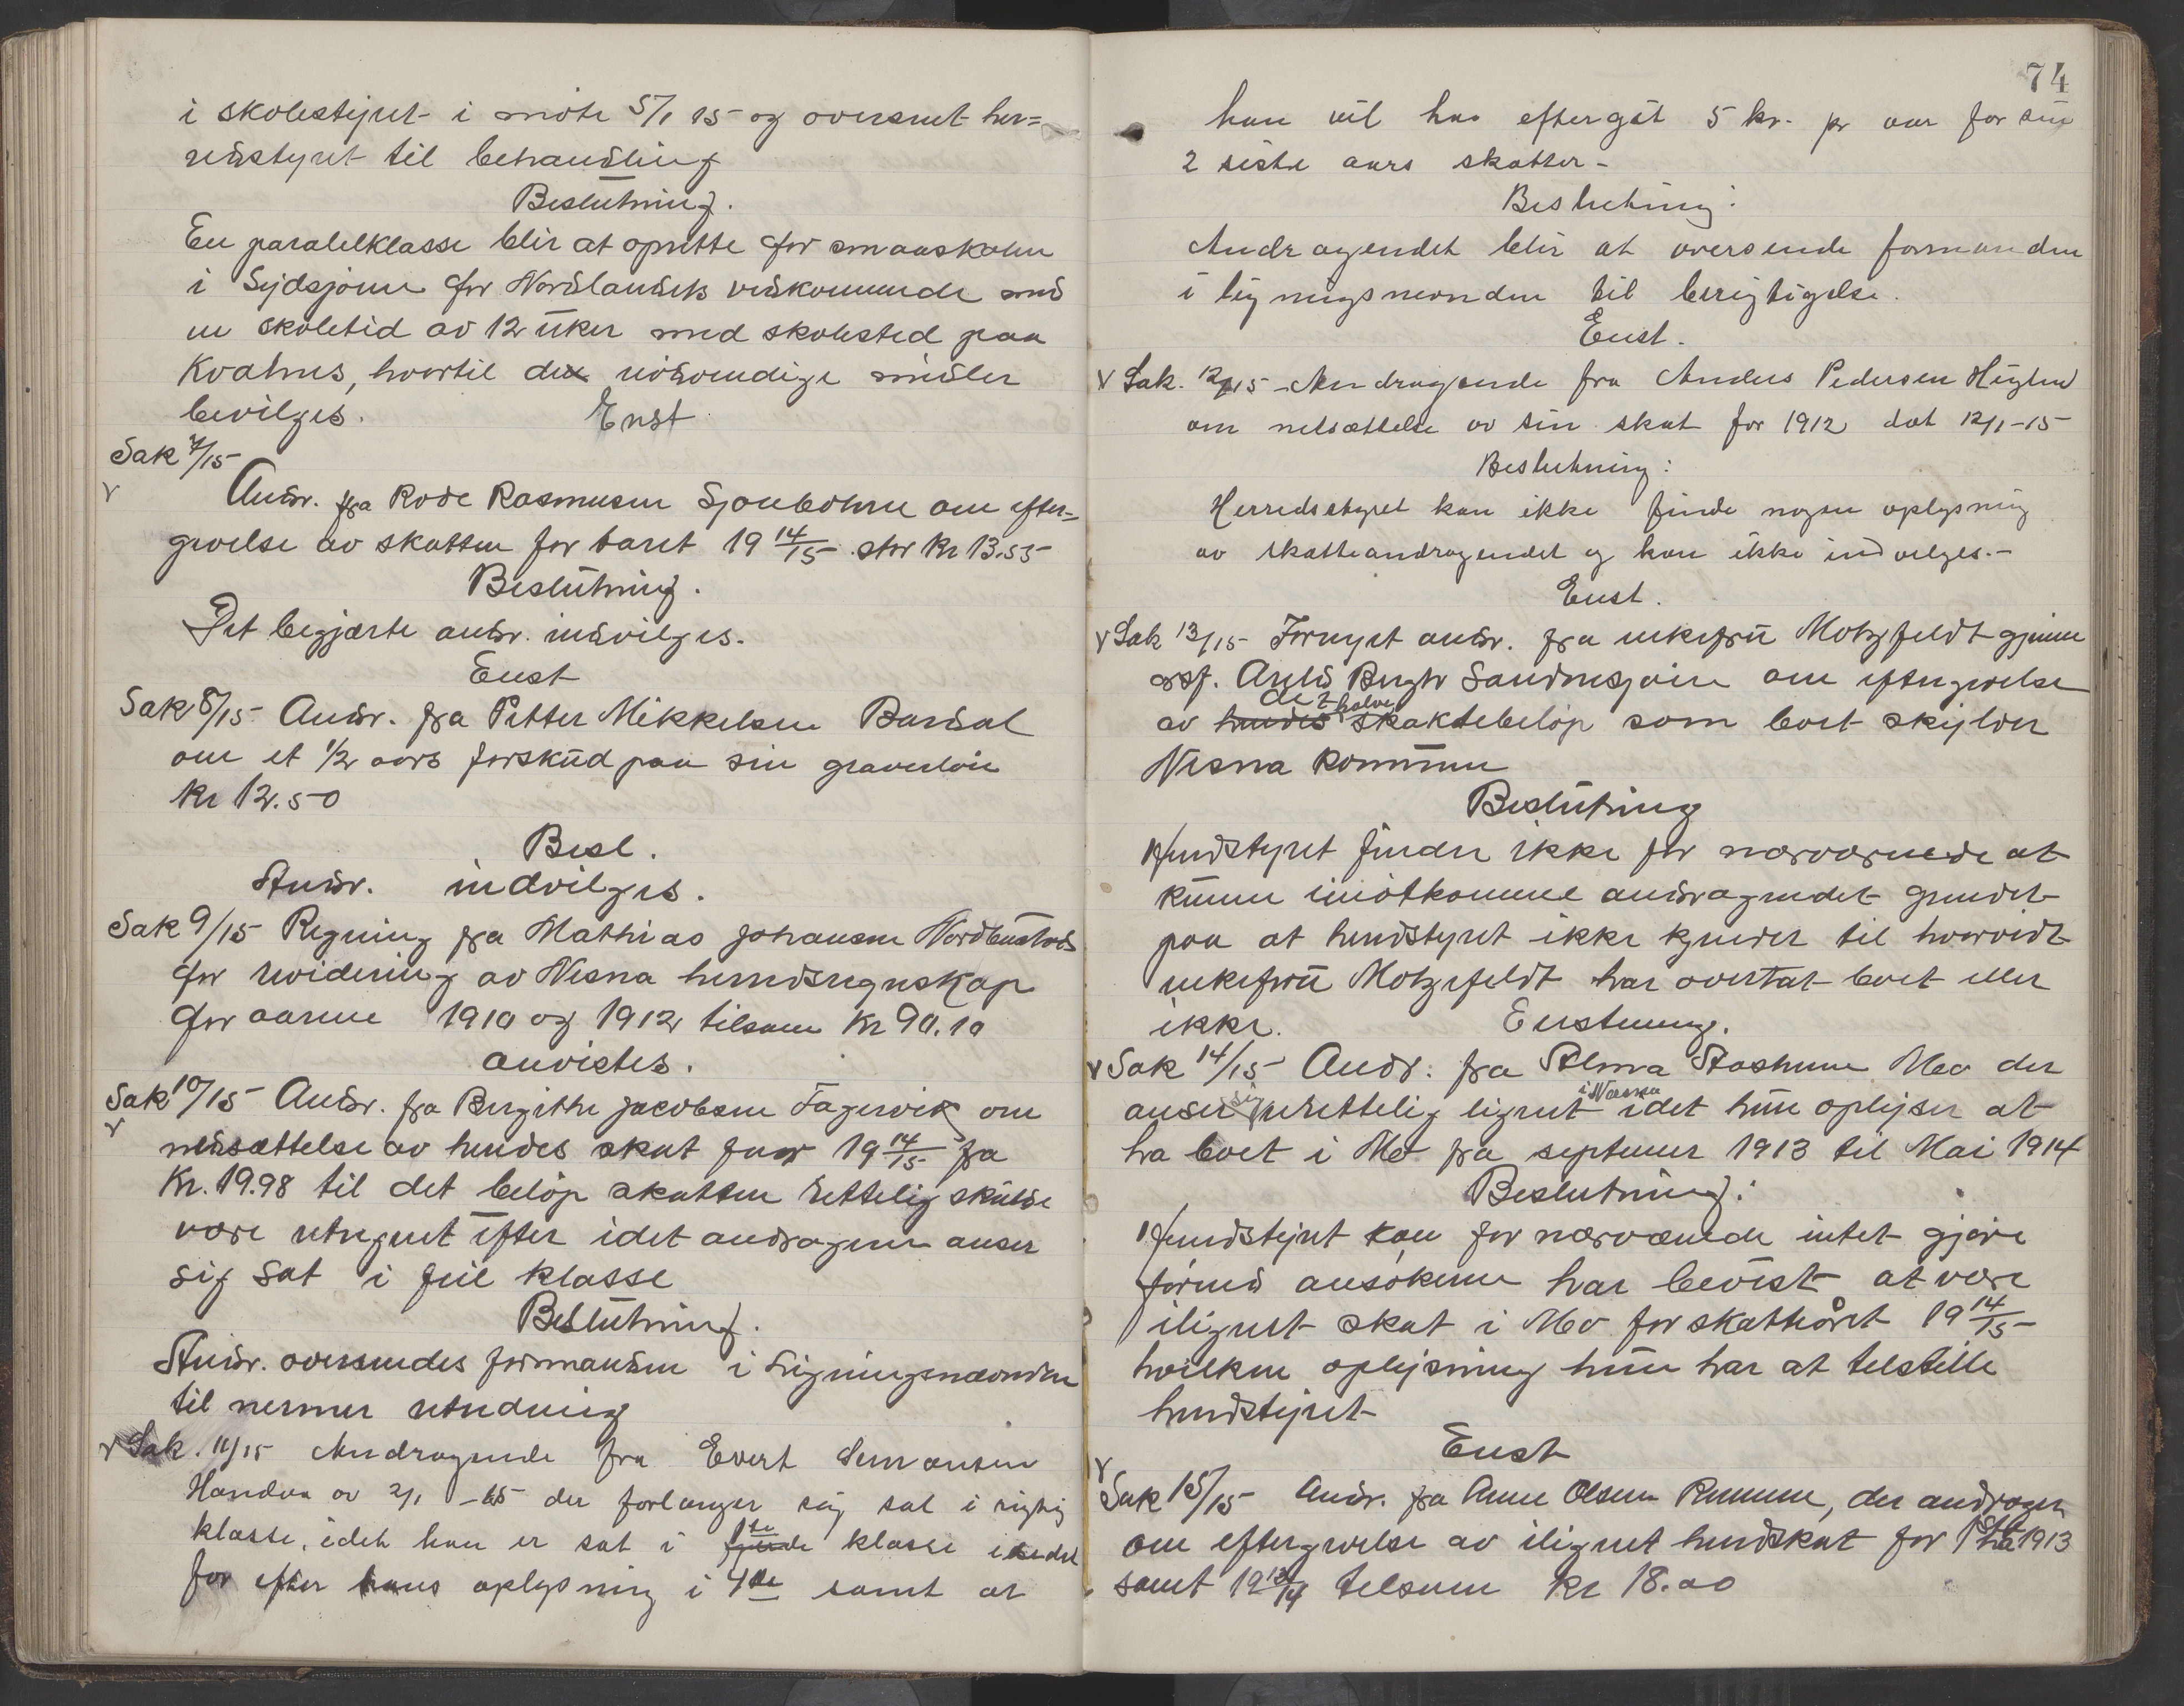 i skolestyret i möte 5/1 15 og oversent her=
redstyret til behandling
Beslutning.
En paralelklasse blir at oprette for smaaskolen
i Sydsjonen for Nordlandets vedkommende med
en skoletid av 12 uker med skolested paa
Kvalnes, hvortil de nödvendige midler
bevilges. Enst
Sak 7/15
v Andr. fra Rode Rasmusen Sjonbotnen om efter=
givelse av skatten for baret 19 14/15 stor kr 13.55
Beslutning.
Det begjærte andr. indvilges.
Enst
Sak 8/15 Andr. fra Petter Mikkelsen Bardal
om et 1/2 aars forskud paa sin graverlön
kr 12.50
Besl.
Andr. indvilges.
Sak 9/15 Regning fra Mathias Johansen
for revidering av Nesna herredsregnskap
for aarene 1910 og 1912 tilsam kr 90.10
anvistes.
Sak 10/15 Andr. fra Bergitte Jacobsen Fagervik om
v
nedsættelse av hendes skat for 19 14/15 fra
Kr. 19.98 til det belöp skatten rettelig skulde
være utregnet efter idet andrageren anser
sig sat i feil klasse
Beslutning.
Andr. oversendes formanden i Ligningsnævnden
til nermer utredning
v Sak. 11/15 Andragende fra Evert Simonsen
Handnes av 2/1 -15 der forlanger sig sat i rigtig
klasse, idet han er sat i 1ste klasse istedet
for efter hans oplysning i 4de samt at
74
han vil ha eftergit 5 kr. pr aar for sin
2 siste aars skatter -
Beslutning:
Andragendet blir at oversende formanden
i ligningsnevnden til berigtigelse.
Enst.
v Sak. 12/15 - Andragende fra Anders Pedersen
om nedsættelse av sin skat for 1912 dat 12/1-15
Beslutning:
Herredsstyret kan ikke finde nogen oplysning
av skatteandragendet og kan ikke indvilges. -
Enst.
v Sak 13/15 Fornyet andr. fra enkefru Motzfeldt gjennem
osf. Arild Bugge Sandnesjöen om eftergivelse
de 2 halve
av hendes skattebelöp som boet skylder
Nesna kommune
Beslutning
Herredstyret finder ikke for nærværende at
kunne imötkomme andragendet grundet
paa at herredstyret ikke kjender til hvorvidt
enkefru Motzfeldt har overtat boet eller
ikke. Enstemmig.
v Sak 14/15 Andr. fra Alma Mo der
anser sig urettelig lignet i Nesna idet hun oplyser at
ha boet i Mo fra septemer 1913 til Mai 1914
Beslutning:
Herredstyret kan for nærværende intet gjöre
förend ansökeren har bevist at være
ilignet skat i Mo for skatteåret 19 14/15
hvilken oplysning hun har at tilstille
herredstyret
Enst
v
Sak 15/15 Andr. fra Anne Olsen, der androger
om eftergivelse av ilignet herredskat for 1ste h.a 1913
samt 19 13/14 tilsam kr 18.00